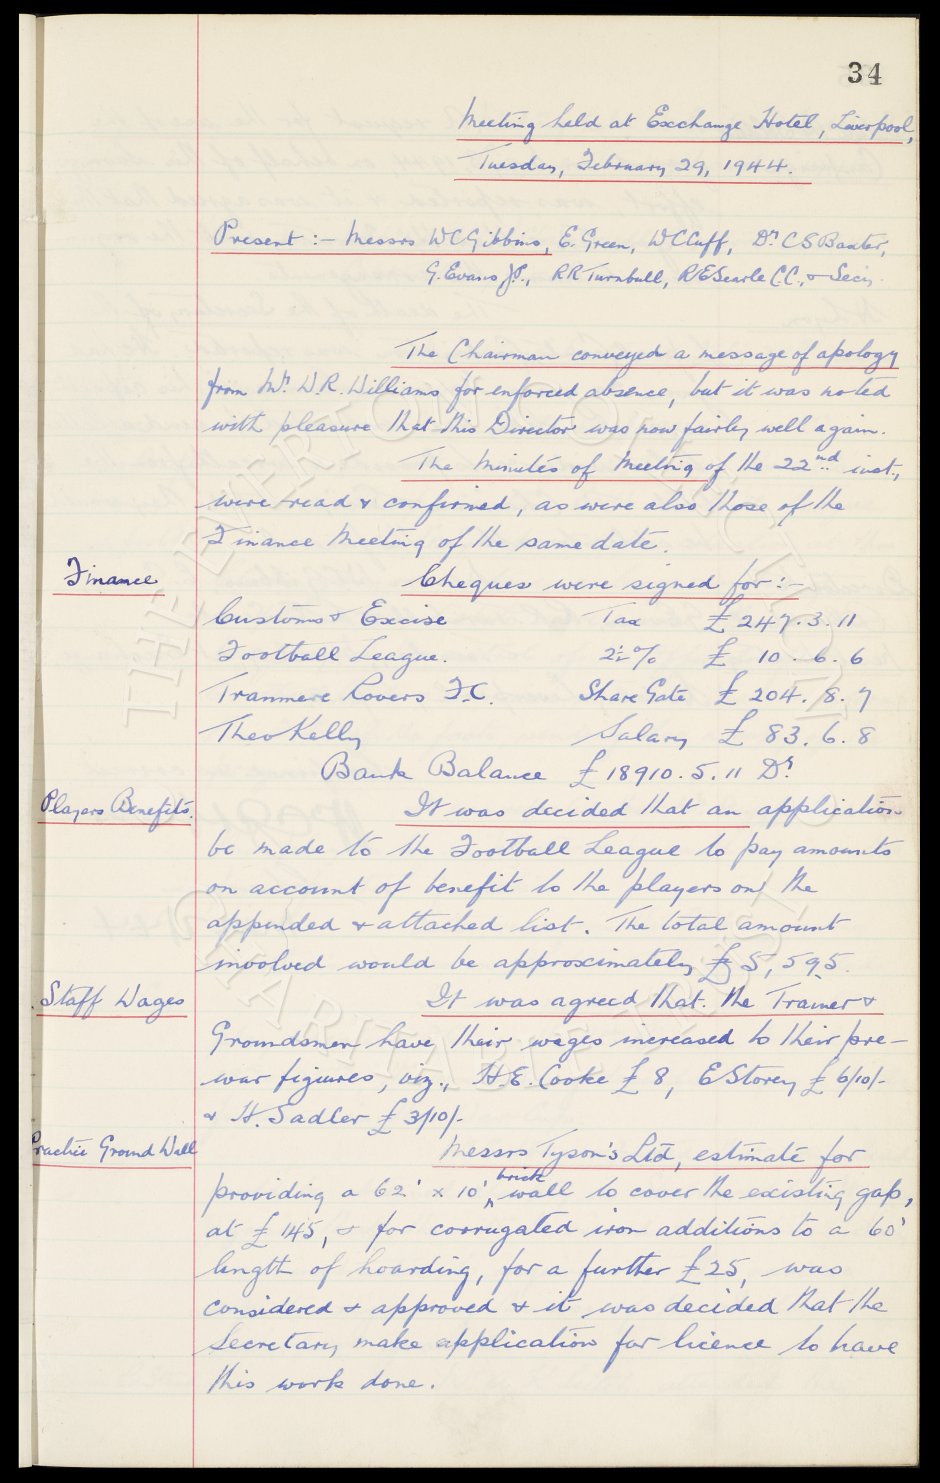 34
Meeting held at Exchange Hotel, Liverpool,
Tuesday, February 29, 1944.
Present :- Messrs W C Gibbins, E. Green, W C Cuff, Dr. C S Baxter,
G. Evans J.P., R R Turnbull, R E Searle C.C., & Secy.
The Chairman conveyed a message of apology
from Mr. W.R. Williams for enforced absence, but it was noted
with pleasure that this Director was now fairly well again.
The Minutes of Meeting of the 22nd inst.,
were read & confirmed, as were also those of the
Finance Meeting of the same date.
Finance
Cheques were signed for :-
Customs & Excise Tax £ 247. 3. 11
Football League. 2½% £ 10. 6. 6
Tranmere Rovers F.C. Share Gate £ 204. 8. 7
Theo Kelly Salary £ 83. 6. 8
Bank Balance £ 18910. 5. 11 Dr.
Players Benefits.
It was decided that an application
be made to the Football League to pay amounts
on account of benefit to the players on the
appended & attached list. The total amount
involved would be approximately £5,595.
Staff Wages
It was agreed that the Trainer &
Groundsmen have their wages increased to their pre-
war figures, viz., H.E. Cooke £ 8, E Storey £ 6/10/-
& H. Sadler £ 3/10/-
Practice Ground Wall
Messrs Tyson's Ltd, estimate for
providing a 62' x 10' brick wall to cover the existing gap,
at £ 145, & for corrugated iron additions to a 60'
length of hoarding, for a further £ 25, was
considered & approved & it was decided that the
Secretary make application for licence to have
this work done.
THE EVERTON COLLECTION
CHARITABLE TRUST